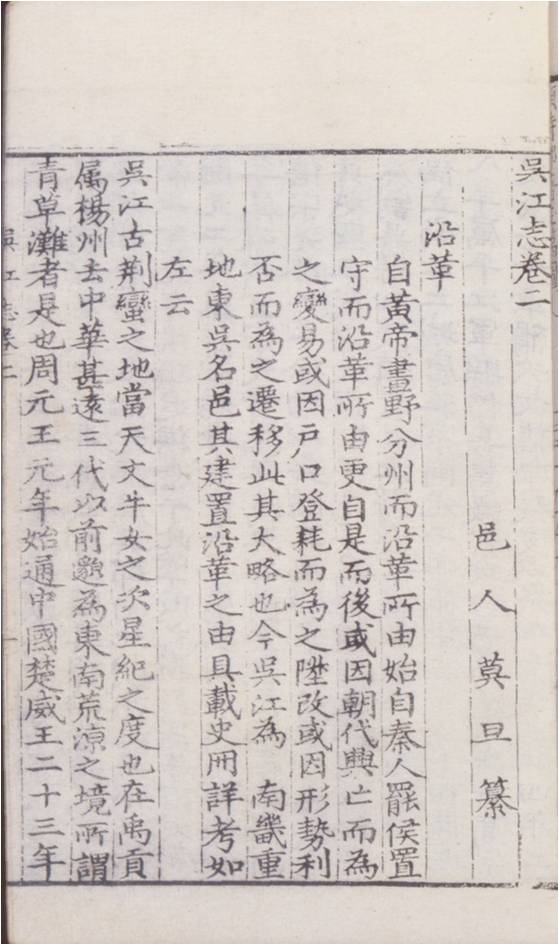 吳江志卷二
邑人莫旦纂
沿革
自黃帝畫野分州而沿革所由始自秦人罷侯置
守而沿革所由更自是而後或因朝代興亡而為
之變易或因戶口登耗而為之陞改或因形勢利
否而為之遷移此其大略也今吳江為 南畿重
地東吳名邑其建置沿革之由具載史冊詳考如
左云
吳江古荆蠻之地當天文牛女之次星紀之度也在禹貢
属楊州去中華甚遠三代以前邈為東南荒凉之境所謂
青草灘者是也周元王元年始通中國楚威王二十三年
吳江志卷二
一